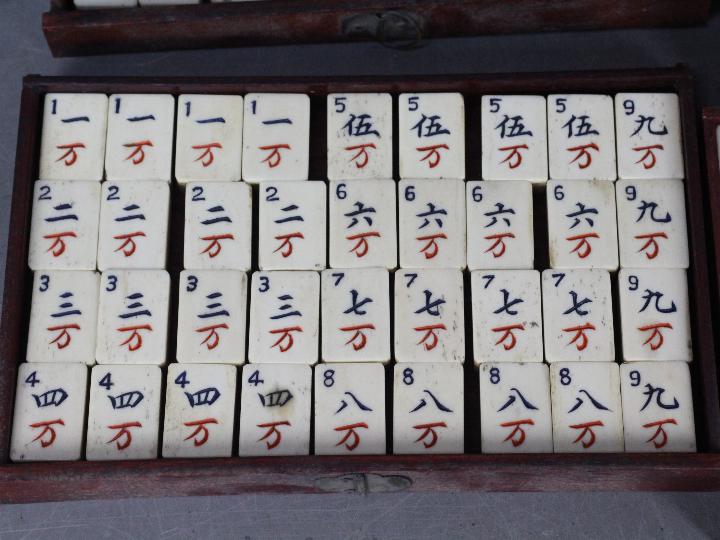 1 一 1 一 1 一 1 一 5 伍 5 伍 5 伍 5 伍 9 九
万 万 万 万 万 万 万 万 万
2 二 2 二 2 二 2 二 6 六 6 六 6 六 6 六 9 九
万 万 万 万 万 万 万 万 万
3 三 3 三 3 三 3 三 7 七 7 七 7 七 7 七 9 九
万 万 万 万 万 万 万 万 万
4 四 4 四 4 四 4 四 8 八 8 八 8 八 8 八 9 九
万 万 万 万 万 万 万 万 万